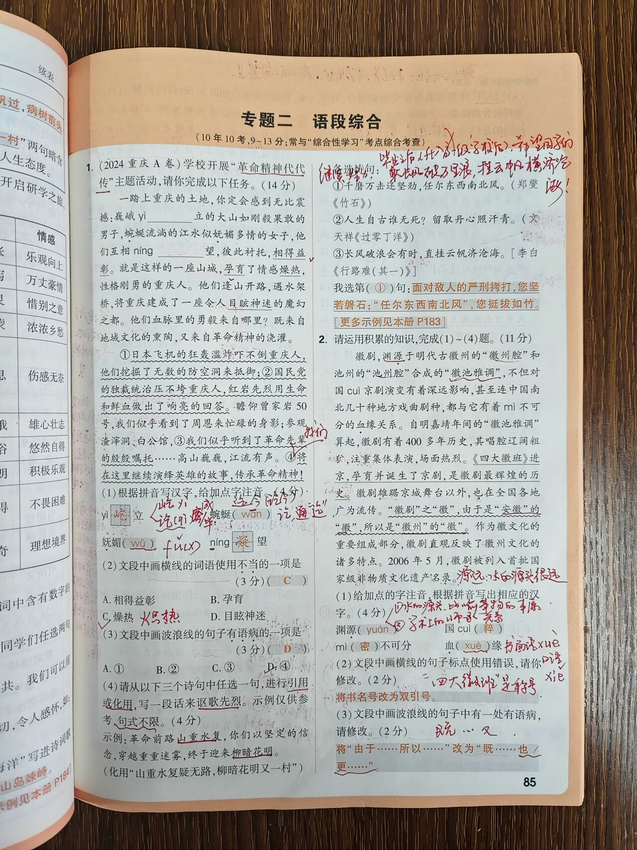 续表
专题二 语段综合
(10年10考,9~13分;常与“综合性学习”考点综合考查)
帆过,病树前头
一村”两句暗含
人生态度。
开启研学之旅
情感
乐观向上
万丈豪情
惜别之意
浓浓乡愁
伤感无奈
雄心壮志
悠然自得
积极乐观
不畏困难
理想境界
词中含有数字的
同学们任选两句
共。我们可以用
切,令人感怀,如
海洋”写进诗词歌
山岛竦峙
示例见本册 P184
1. (2024重庆A卷)学校开展“革命精神代代
传”主题活动,请你完成以下任务。(14分)
一踏上重庆的土地,你定会感到无比震
撼:巍峨 yì 立的大山如刚毅果敢的
男子,蜿蜒流淌的江水似妩媚多情的女子,他
们互相 níng 望,彼此衬托,相得益
彰。就是这样的一座山城,孕育了情感燥热,
性格刚勇的重庆人。他们逢山开路,遇水架
桥,将重庆建成了一座令人目眩神迷的魔幻
之都。他们血脉里的勇毅来自哪里?既来自
地域文化的熏陶,又来自革命精神的洗濯。
①日本飞机的狂轰滥炸吓不倒重庆人,
他们挖掘了无数的防空洞来抵御;②国民党
的独裁统治压不垮重庆人,红岩先烈用生命
和鲜血做出了响亮的回答。瞻仰曾家岩50
号,我们似乎看到了周恩来忙碌的身影;参观
渣滓洞、白公馆,③我们似乎听到了革命先辈
的殷殷嘱托……高山巍巍,江流有声。④将
在这里继续演绎英雄的故事,传承革命精神!
我们
(1)根据拼音写汉字,给加点字注音。(4分)
yì 屹 立 蜿蜒( wān )
妩媚( wǔ ) níng 凝 望
(2)文段中画横线的词语使用不当的一项是
(3分)( C )
A.相得益彰 B.孕育
C.燥热 D.目眩神迷
火热
(3)文段中画波浪线的句子有语病的一项是
(3分)( D )
A.① B.② C.③ D.④
(4)请从以下三个诗句中任选一句,进行引用
或化用,写一段话来讴歌先烈。示例仅供参
考,句式不限。(4分)
示例:革命前路山重水复,你们以坚定的信
念,穿越重重迷雾,终于迎来柳暗花明。
(化用“山重水复疑无路,柳暗花明又一村”)
备选诗句:
①千磨万击还坚劲,任尔东西南北风。(郑燮
《竹石》)
②人生自古谁无死?留取丹心照汗青。(文
天祥《过零丁洋》)
③长风破浪会有时,直挂云帆济沧海。[李白
《行路难(其一)》]
我选第( ① )句:面对敌人的严刑拷打,您坚
若磐石;“任尔东西南北风”,您挺拔如竹。
[更多示例见本册 P183]
2. 请运用积累的知识,完成(1)~(4)题。(11分)
徽剧,渊源于明代古徽州的“徽州腔”和
池州的“池州腔”合成的“徽池雅调”,不但对
国 cuì 京剧演变有着深远影响,甚至连中国南
北几十种地方戏曲剧种,都与它有着 mì 不可
分的血缘关系。自明嘉靖年间的“徽池雅调”
算起,徽剧有着400多年历史,其唱腔辽阔粗
犷,注重集体表演,场面热烈。《四大徽班》进
京,孕育并诞生了京剧,是徽剧最辉煌的历
史。徽剧雄踞京城舞台以外,也在全国各地
广为流传。“徽剧”之“徽”,由于是“安徽”的
“徽”,所以是“徽州”的“徽”。作为徽文化的
重要组成部分,徽剧直观反映了徽州文化的
诸多特点。2006年5月,徽剧被列入首批国
家级非物质文化遗产名录。
(1)给加点的字注音,根据拼音写出相应的汉
字。(4分)
渊源( yuán ) 国 cuì( 粹 )
mì( 密 )不可分 血( xuè )缘
(2)文段中画横线的句子标点使用错误,请你
修改。(2分)
“四大徽班”是称号
将书名号改为双引号。
(3)文段中画波浪线的句子中有一处有语病,
请修改。(2分)
既……又
将“由于……所以……”改为“既……也/
更……”
85